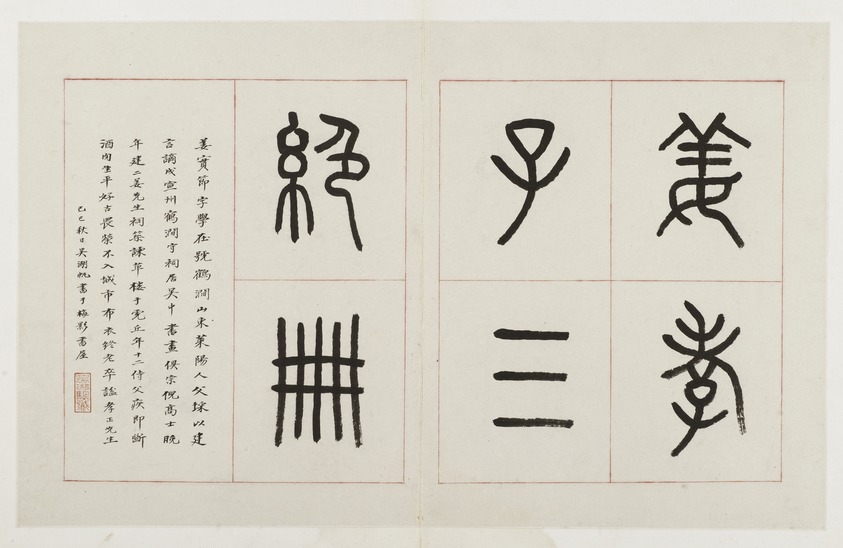 姜孝
子三
絕冊
姜實節字學在號鶴澗山東萊陽人父埰以建
言謫戍宣州鶴澗守祠居吳中書畫俱宗倪高士晚
年建二姜先生祠築諫草樓于虎丘年十二侍父疾即斷
酒肉生平好古畏榮不入城市布衣終老卒諡孝正先生
己巳秋日吳湖帆書于梅影書屋